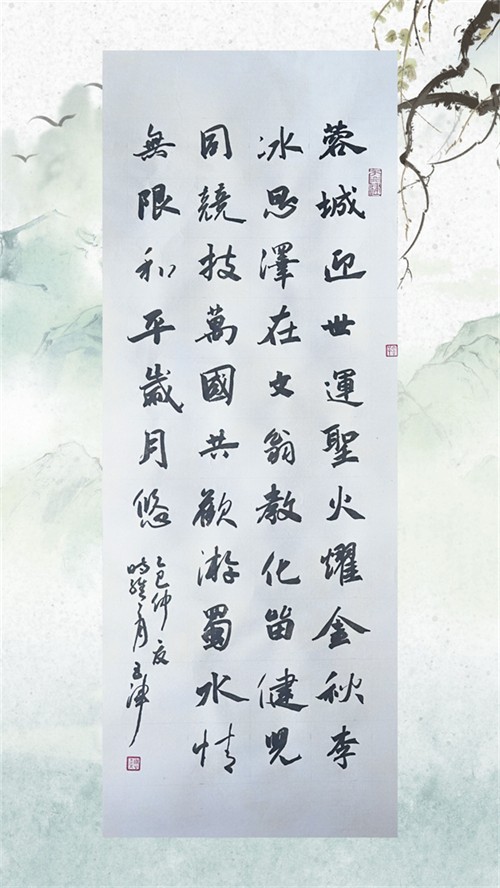 蓉城迎世運聖火耀金秋李
冰恩澤在文翁教化留健兒
同競技萬國共歡游蜀水情
無限和平歲月悠
乙巳仲夏